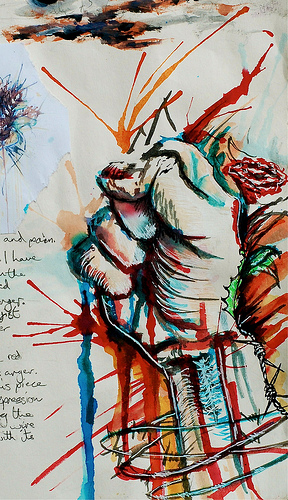 and pain.
I have
the
ed
anger.
er
red
anger.
is piece
xpression
g the
wire
ith its